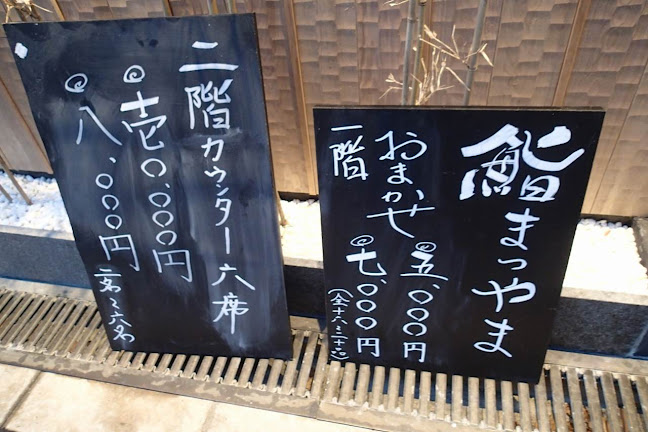 鮨まつやま
おまかせ
一階
五、〇〇〇円
七、〇〇〇円
二階カウンター六席
壱〇、〇〇〇円
八、〇〇〇円
二名〜六名